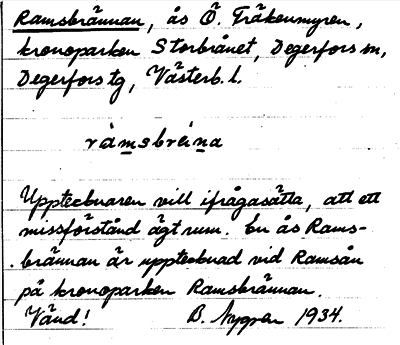 Ramsbrännan, ås Ö. Fräkenmyren,
kronoparken Storbrånet, Degerfors sn,
Degerfors tg, Västerb. l.
ràmsbreina
Upptecknaren vill ifrågasätta, att ett
missförstånd ägt rum. En ås Rams-
brännan är upptecknad vid Ramsån
på kronoparken Ramsbrännan.
Vänd! B. Nygren 1934.